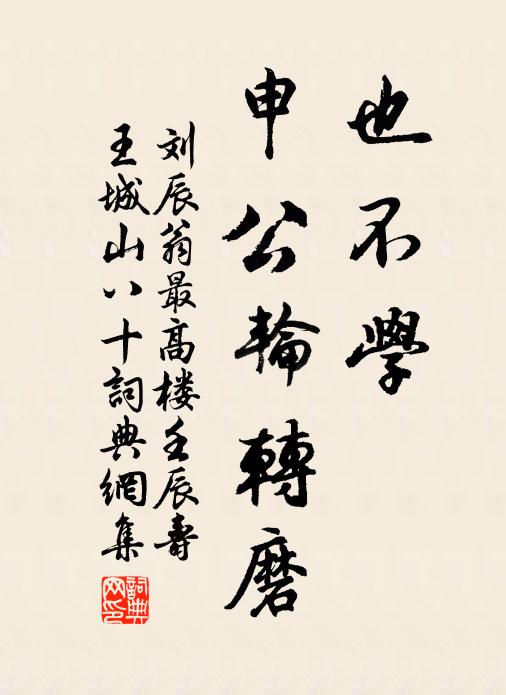 也不學
申公輪轉磨
刘辰翁最高楼壬辰壽
王城山八十詞典網集
詞典網印